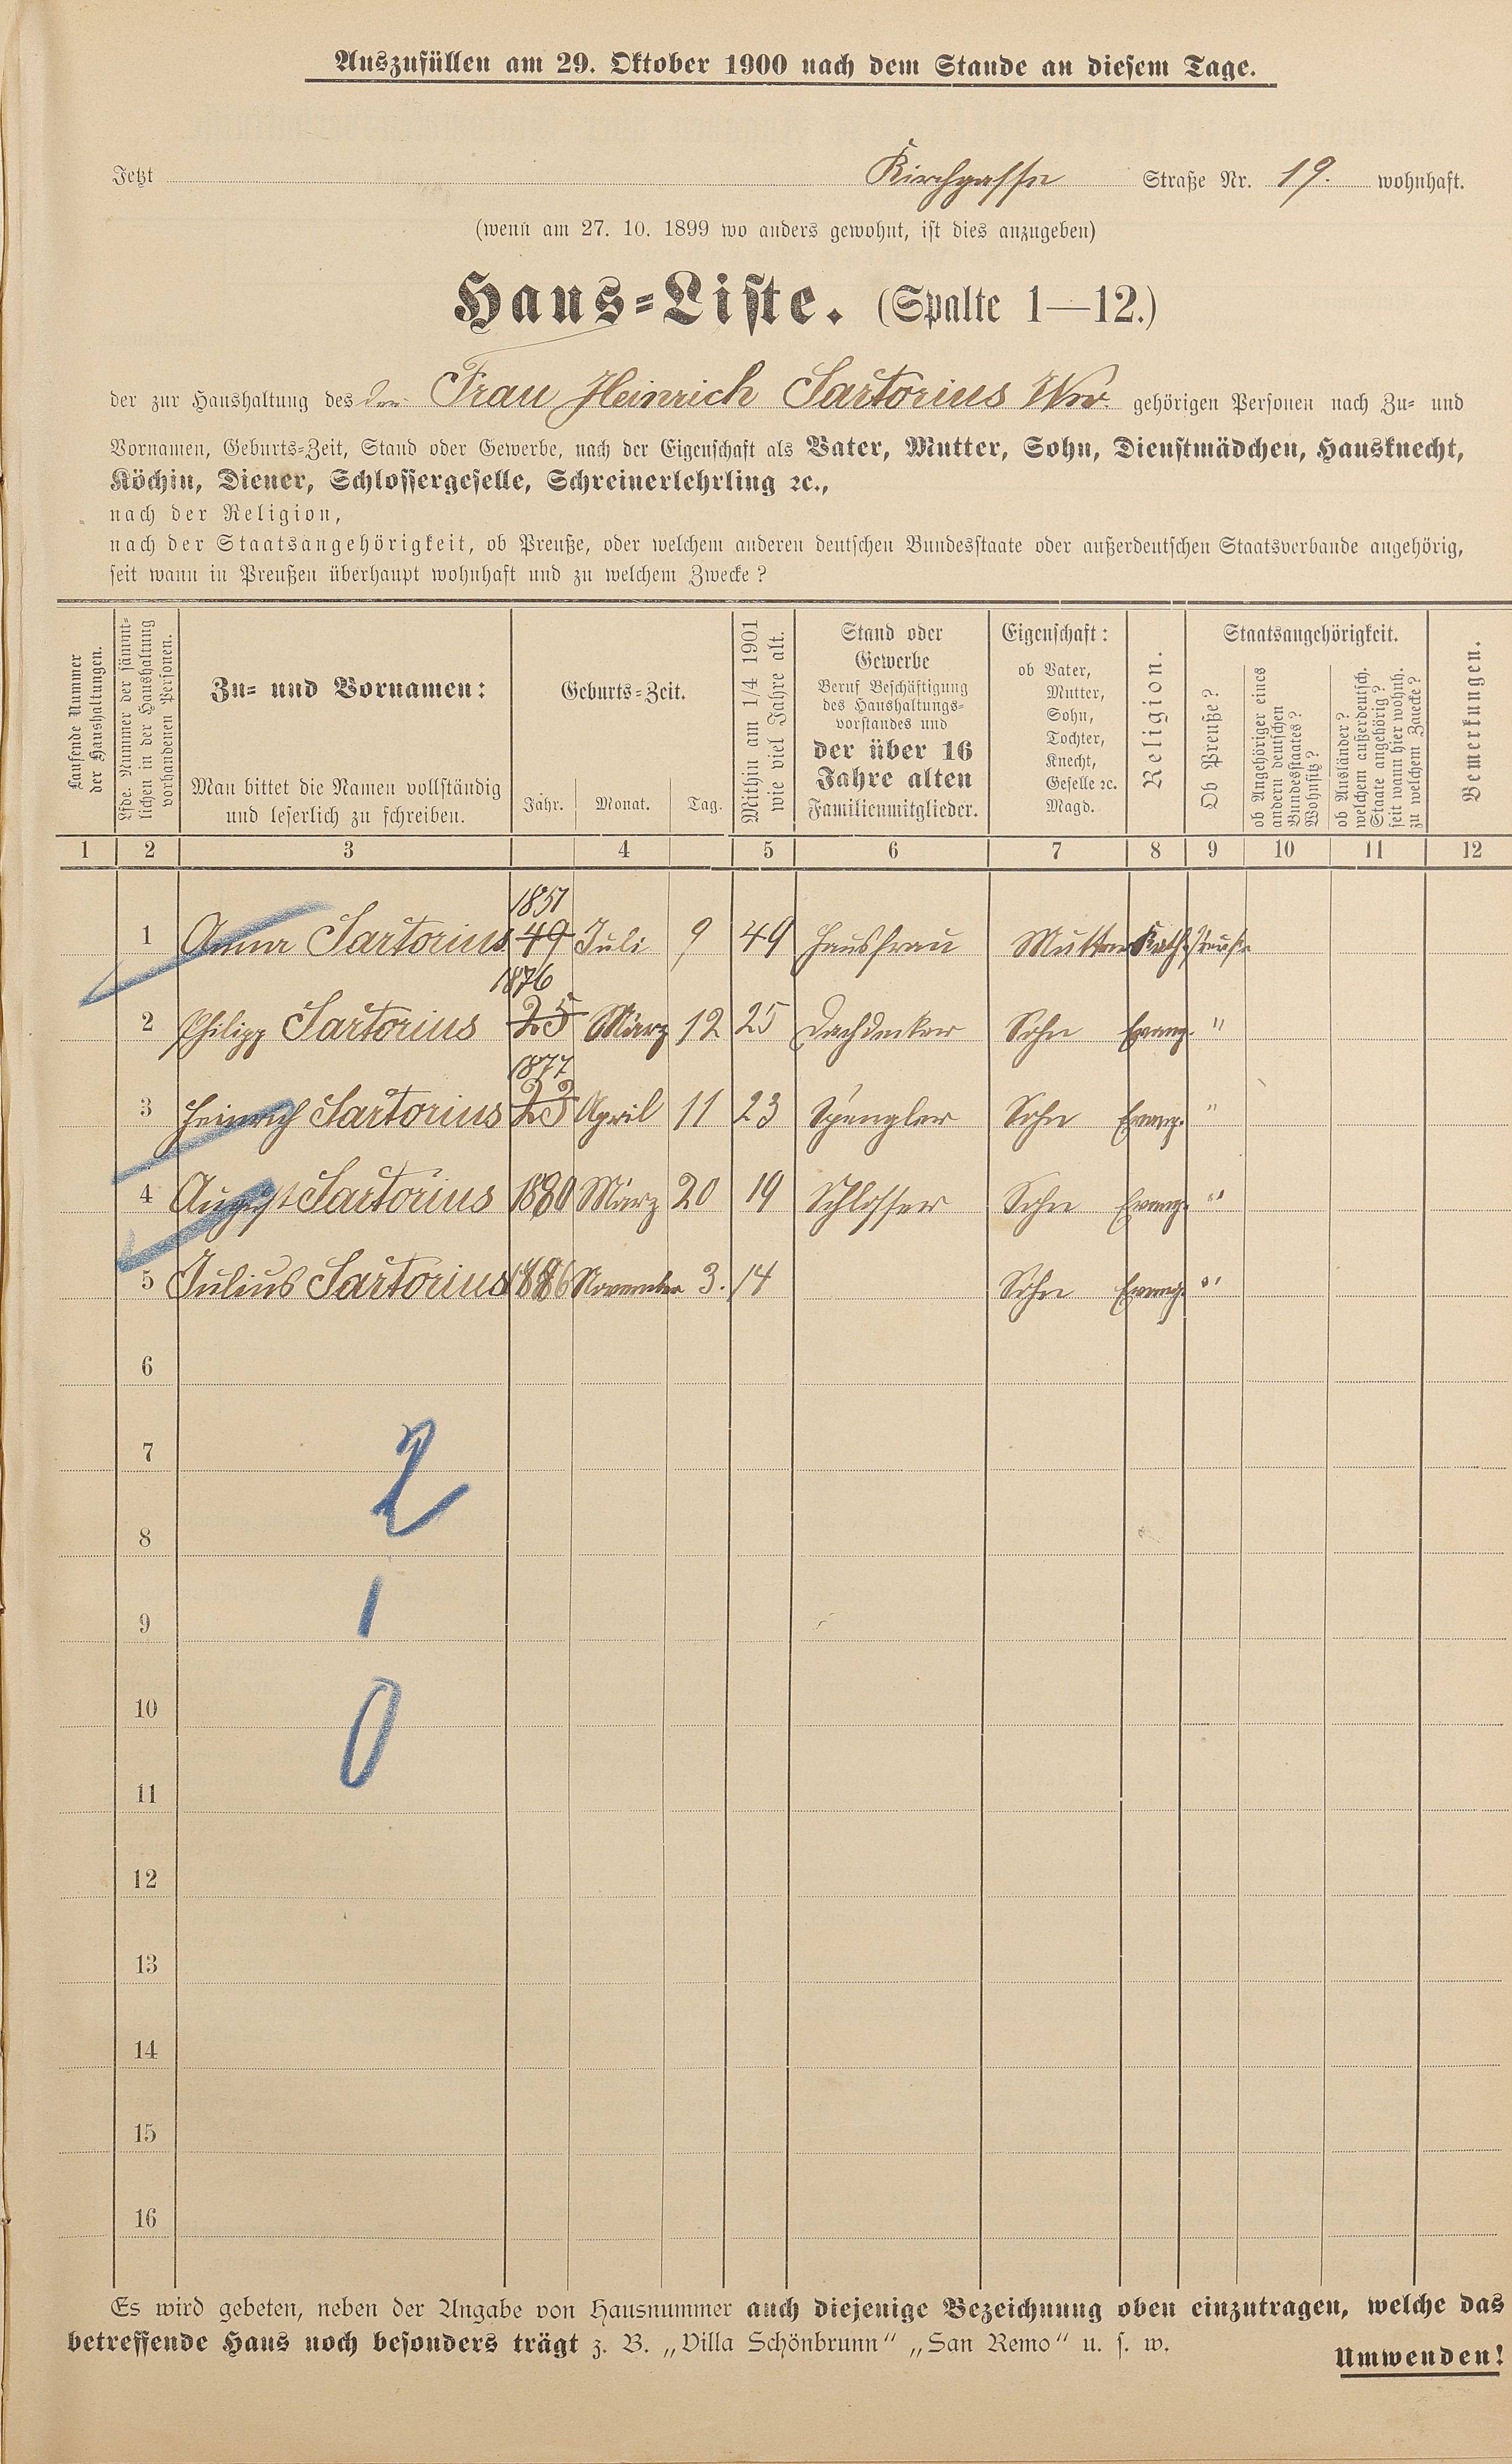 Auszufüllen am 29. Oktober 1900 nach dem Stande an diesem Tage.
Jetzt Kirchgasse Straße Nr. 19. wohnhaft.
(wenn am 27. 10. 1899 wo anders gewohnt, ist dies anzugeben)
Haus-Liste. (Spalte 1—12.)
der zur Haushaltung des der Frau Heinrich Sartorius Ww. gehörigen Personen nach Zu- und
Vornamen, Geburts-Zeit, Stand oder Gewerbe, nach der Eigenschaft als Vater, Mutter, Sohn, Dienstmädchen, Hausknecht,
Köchin, Diener, Schlossergeselle, Schreinerlehrling ꝛc.,
nach der Religion,
nach der Staatsangehörigkeit, ob Preuße, oder welchem anderen deutschen Bundesstaate oder außerdeutschen Staatsverbande angehörig,
seit wann in Preußen überhaupt wohnhaft und zu welchem Zwecke?
Laufende Nummer
der Haushaltungen.
Lfde. Nummer der sämmt-
lichen in der Haushaltung
vorhandenen Personen.
Zu- und Vornamen:
Man bittet die Namen vollständig
und leserlich zu schreiben.
Geburts-Zeit.
Jahr. Monat. Tag.
Mithin am 1/4 1901
wie viel Jahre alt.
Stand oder
Gewerbe
Beruf Beschäftigung
des Haushaltungs-
vorstandes und
der über 16
Jahre alten
Familienmitglieder.
Eigenschaft:
ob Vater,
Mutter,
Sohn,
Tochter,
Knecht,
Geselle ꝛc.
Magd.
Religion.
Staatsangehörigkeit.
Ob Preuße?
ob Angehöriger eines
andern deutschen
Bundesstaates?
Wohnsitz?
ob Ausländer?
welchem außerdeutsch.
Staate angehörig?
seit wann hier wohnh.
zu welchem Zwecke?
Bemerkungen.
1 2 3 4 5 6 7 8 9 10 11 12
1851
1 Anna Sartorius 49 Juli 9 49 Hausfrau Mutter Kath. Preuße
1876
2 Philipp Sartorius 25 März 12 25 Dachdecker Sohn Evang. "
1877
3 Heinrich Sartorius 23 April 11 23 Spengler Sohn Evang. "
4 August Sartorius 1880 März 20 19 Schlosser Sohn Evang. "
5 Julius Sartorius 1886 November 3. 14 Sohn Evang. "
6
7
2
8
9
1
10
0
11
12
13
14
15
16
Es wird gebeten, neben der Angabe von Hausnummer auch diejenige Bezeichnung oben einzutragen, welche das
betreffende Haus noch besonders trägt z. B. „Villa Schönbrunn" „San Remo" u. s. w.
Umwenden!